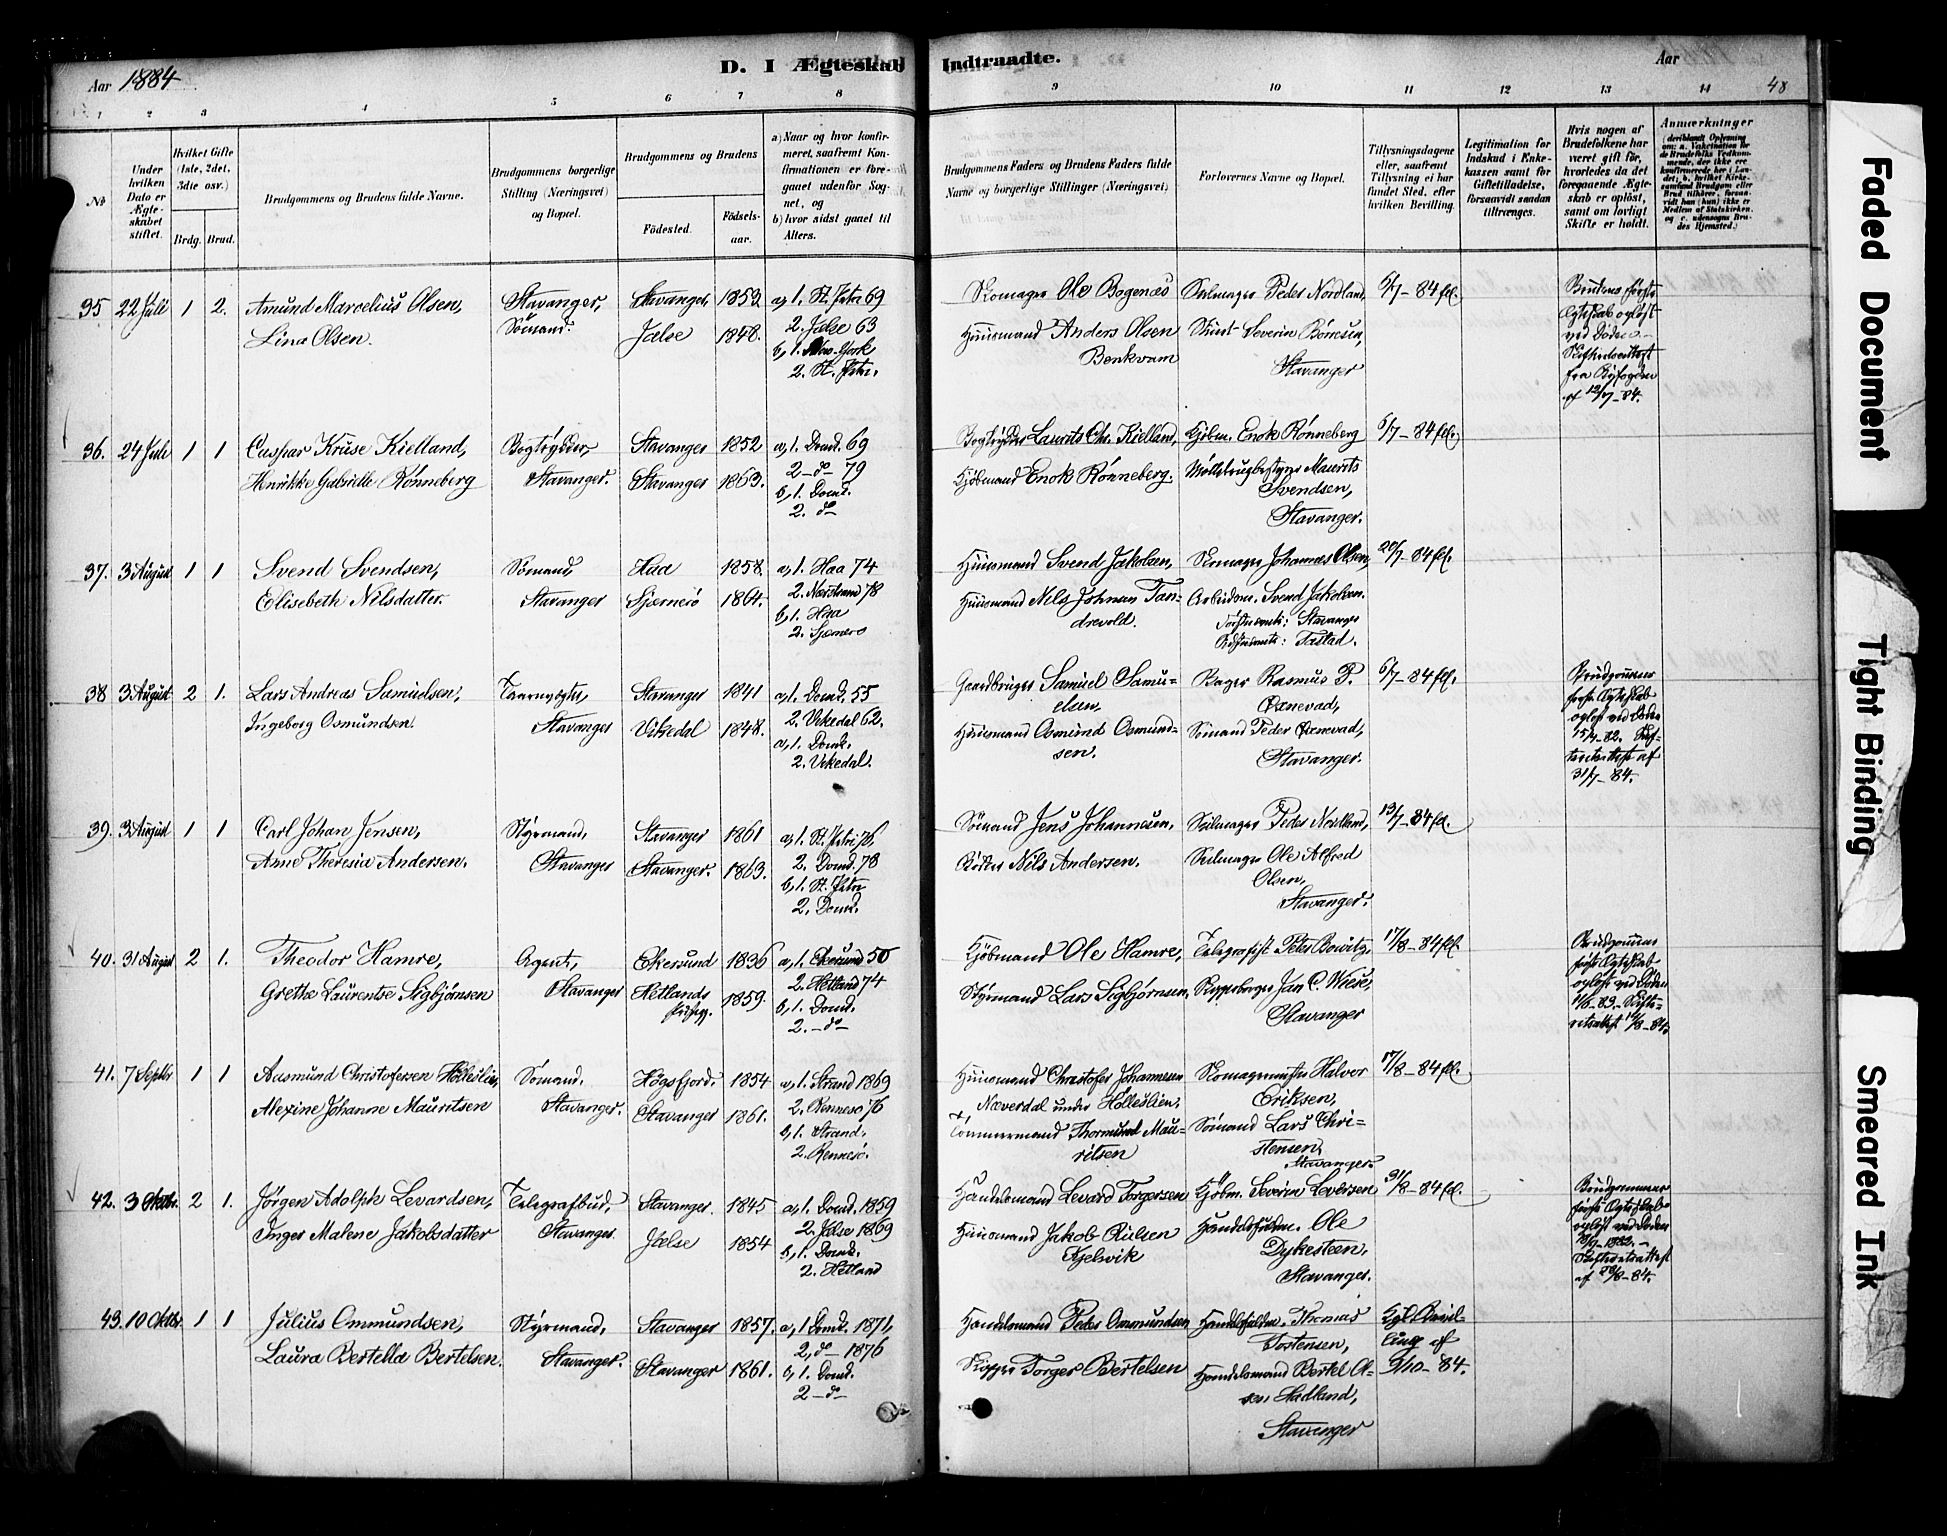 Aar 1884
D. I Ægteskab Indtraadte.
Aar
48
1 2 3 4 5 6 7 8 9 10 11 12 13 14
No
Under hvilken Dato er Ægteskabet stiftet.
Hvilket Gifte (1ste, 2det, 3die osv.)
Brdg. Brud.
Brudgommens og Brudens fulde Navne.
Brudgommens borgerlige Stilling (Næringsvei) og Bopæl.
Brudgommens og Brudens
Födested.
Födselsaar.
a) Naar og hvor konfirmeret, saafremt Konfirmationen er foregaaet udenfor Sognet, og
b) hvor sidst gaaet til Alters.
Brudgommens Faders og Brudens Faders fulde Navne og borgerlige Stillinger (Næringsvei)
Forlovernes Navne og Bopæl.
Tillysningsdagene eller, saafremt Tillysning ei har fundet Sted, efter hvilken Bevilling.
Legitimation for Indskud i Enkekassen samt for Giftetilladelse, forsaavidt saadan tiltrænges.
Hvis nogen af Brudefolkene har været gift för, hvorledes da det foregaaende Ægteskab er oplöst, samt om lovligt Skifte er holdt.
Anmærkninger
35 22 Juli 1 2. Amund Marcelius Olsen, Stavanger, Stavanger, 1853 a, 1. St. Petri 69
Lina Olsen. Sømand. Jælse 1848. 2. Jælse 63
b, 1. New-York
2. St. Petri.
Skomager Ole Bogenæs Seilmager Peder Nordland, 6/7-84 ffl.
Huusmand Anders Olsen Severin Børresen,
Benkvam Stavanger
Brudens første Egteskab opløst ved Døden
fra Byfogden af 12/7-84.
36. 24 Juli 1 1 Caspar Kruse Kielland, Bogtrykker, Stavanger 1852 a, 1. Domk. 69
Henrikke Gabrielle Rønneberg Stavanger. Stavanger 1863. 2 - do 79
b, 1. Domk.
2. do
Bogtrykker Laurits Chr. Kielland, Kjøbm. Enok Rønneberg 6/7-84 ffl.
Kjøbmand Enok Rønneberg. Møllebrugbestyrer Maurits
Svendsen,
Stavanger.
37. 3 August 1 1 Svend Svendsen, Sømand, Haa 1858. a, 1. Haa 74
Elisebeth Nilsdatter. Stavanger Sjærnerø 1864. 2. Nærstrand 78
b, 1. Haa
2. Sjærnerø
Huusmand Svend Jakobsen, Skomager Johannes Olsen, 20/7-84 ffl.
Huusmand Nils Johnsen Tan- Arbeidsm. Svend Jakobsen.
drevold. Førstnævnte: Stavanger
Sidstnævnte: Tastad.
38 3 August 2 1. Lars Andreas Samuelsen, Taarnvægter, Stavanger 1841 a, 1. Domk. 55
Ingeborg Osmundsen Stavanger Vikedal 1848. 2. Vikedal 62.
a, 1. Domk.
2. Vikedal.
Gaardbruger Samuel Samu- Bager Rasmus P. 6/7-84 ffl.
elsen, Øxnevad,
Huusmand Osmund Osmund- Sømand Peder Øxnevad,
sen. Stavanger.
Brudgommens første Egteskab opløst ved Døden 15/9-82. Skifteretsattest af 31/7-84.
39. 3 August 1 1 Carl Johan Jensen, Styrmand, Stavanger 1861 a, 1. St. Petri 76,
Anne Theresia Andersen. Stavanger Stavanger. 1863. 2. Domk. 78
b, 1. St. Petri
2. Domk.
Sømand Jens Johannesen, Seilmager Peder Nordland, 13/7-84 ffl.
Bødker Nils Andersen. Seilmager Ole Alfred
Olsen,
Stavanger.
40. 31 August 2 1. Theodor Hamre, Agent, Ekersund 1836 a, 1. Ekersund 50
Grethe Laurentse Sigbjørnsen Stavanger Hetlands 1859. 2. Hetland 74
Præstgj. b, 1. Domk.
2. - do -
Kjøbmand Ole Hamre, Telegrafist Peter Bowitz, 17/8-84 ffl.
Styrmand Lars Sigbjørnsen, Skipsbygger Jan C. Wiese,
Stavanger
Brudgommens første Egteskab opløst ved Døden
41. 7 Septbr 1 1 Aasmund Christofersen Hølleslien, Sømand. Høgsfjord. 1854 a, 1. Strand 1869
Alexine Johanne Mauritsen Stavanger. Stavanger 1861. 2. Rennesø 76
b, 1. Strand.
2. Rennesø.
Huusmand Christofer Johannesen Skomagermester Halvor 17/8-84 ffl.
Næverdal under Hølleslien, Eriksen,
Tømmermand Thormund Mau- Sømand Lars Chri-
ritsen stensen,
Stavanger.
42. 3 Oktbr. 2 1. Jørgen Adolph Levardsen, Telegrafbud, Stavanger. 1845 a, 1. Domk. 1859
Inger Malene Jakobsdatter Stavanger. Jælse 1854 2. Jælse 1869
b, 1. Domk.
2. Hetland
Handelsmand Levard Torgersen Kjøbm. Severin Leversen 31/8-84 ffl.
Huusmand Jakob Knudsen Handelsfuldm. Ole
Kjelvik Dykesteen,
Stavanger.
Brudgommens første Egteskab opløst ved Døden 18/9-1882. - Skifteretsattest
43. 10 Oktbr 1 1 Julius Ommundsen, Styrmand, Stavanger 1857. a, 1 Domk. 1871,
Laura Bertella Bertelsen. Stavanger. Stavanger 1861. 2, do - 1876
b, 1. Domk.
2 - do -
Handelsmand Peder Ommundsen Handelsfuldm. Thomas Kgl. Bevil-
Tostensen, ling af
Skipper Torger Bertelsen Handelsmand Bertel Ol- 9/10-84.
sen Hadland,
Stavanger
Faded Document
Tight Binding
Smeared Ink